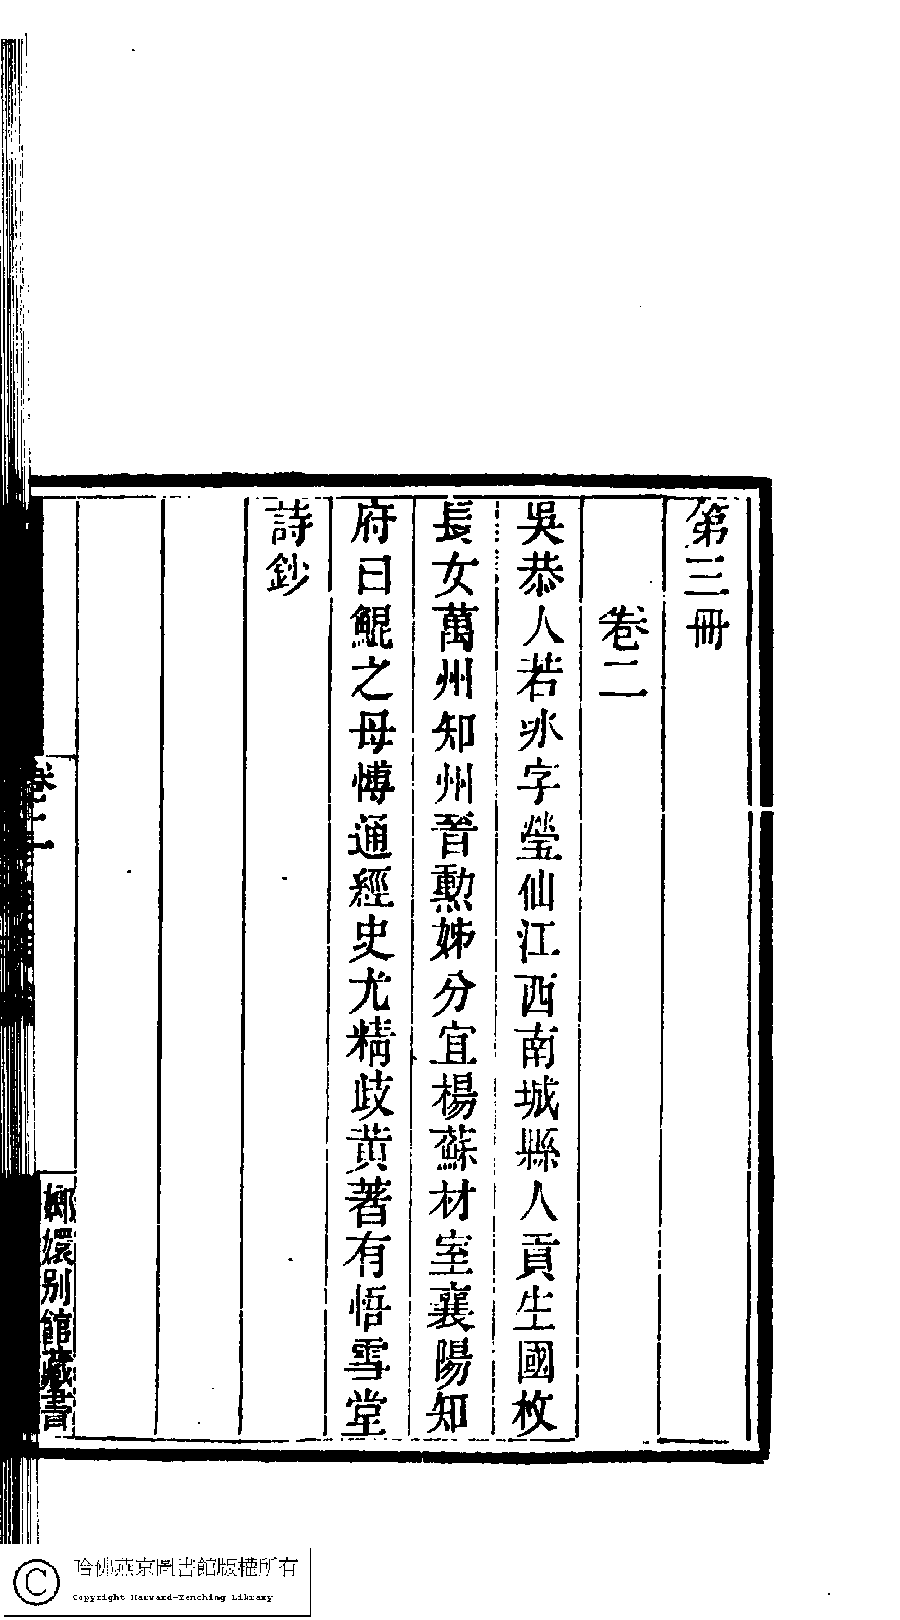 第三冊
卷二
吳恭人若冰字瑩仙江西南城縣人貢生國枚
長女萬州知州晉勲姊分宜楊蘇材室襄陽知
府曰鯤之母慱通經史尤精歧黃著有悟雪堂
詩鈔
卷二
嫏嬛别館藏書
哈佛燕京圖書館版權所有
Copyright Harvard-Yenching Library